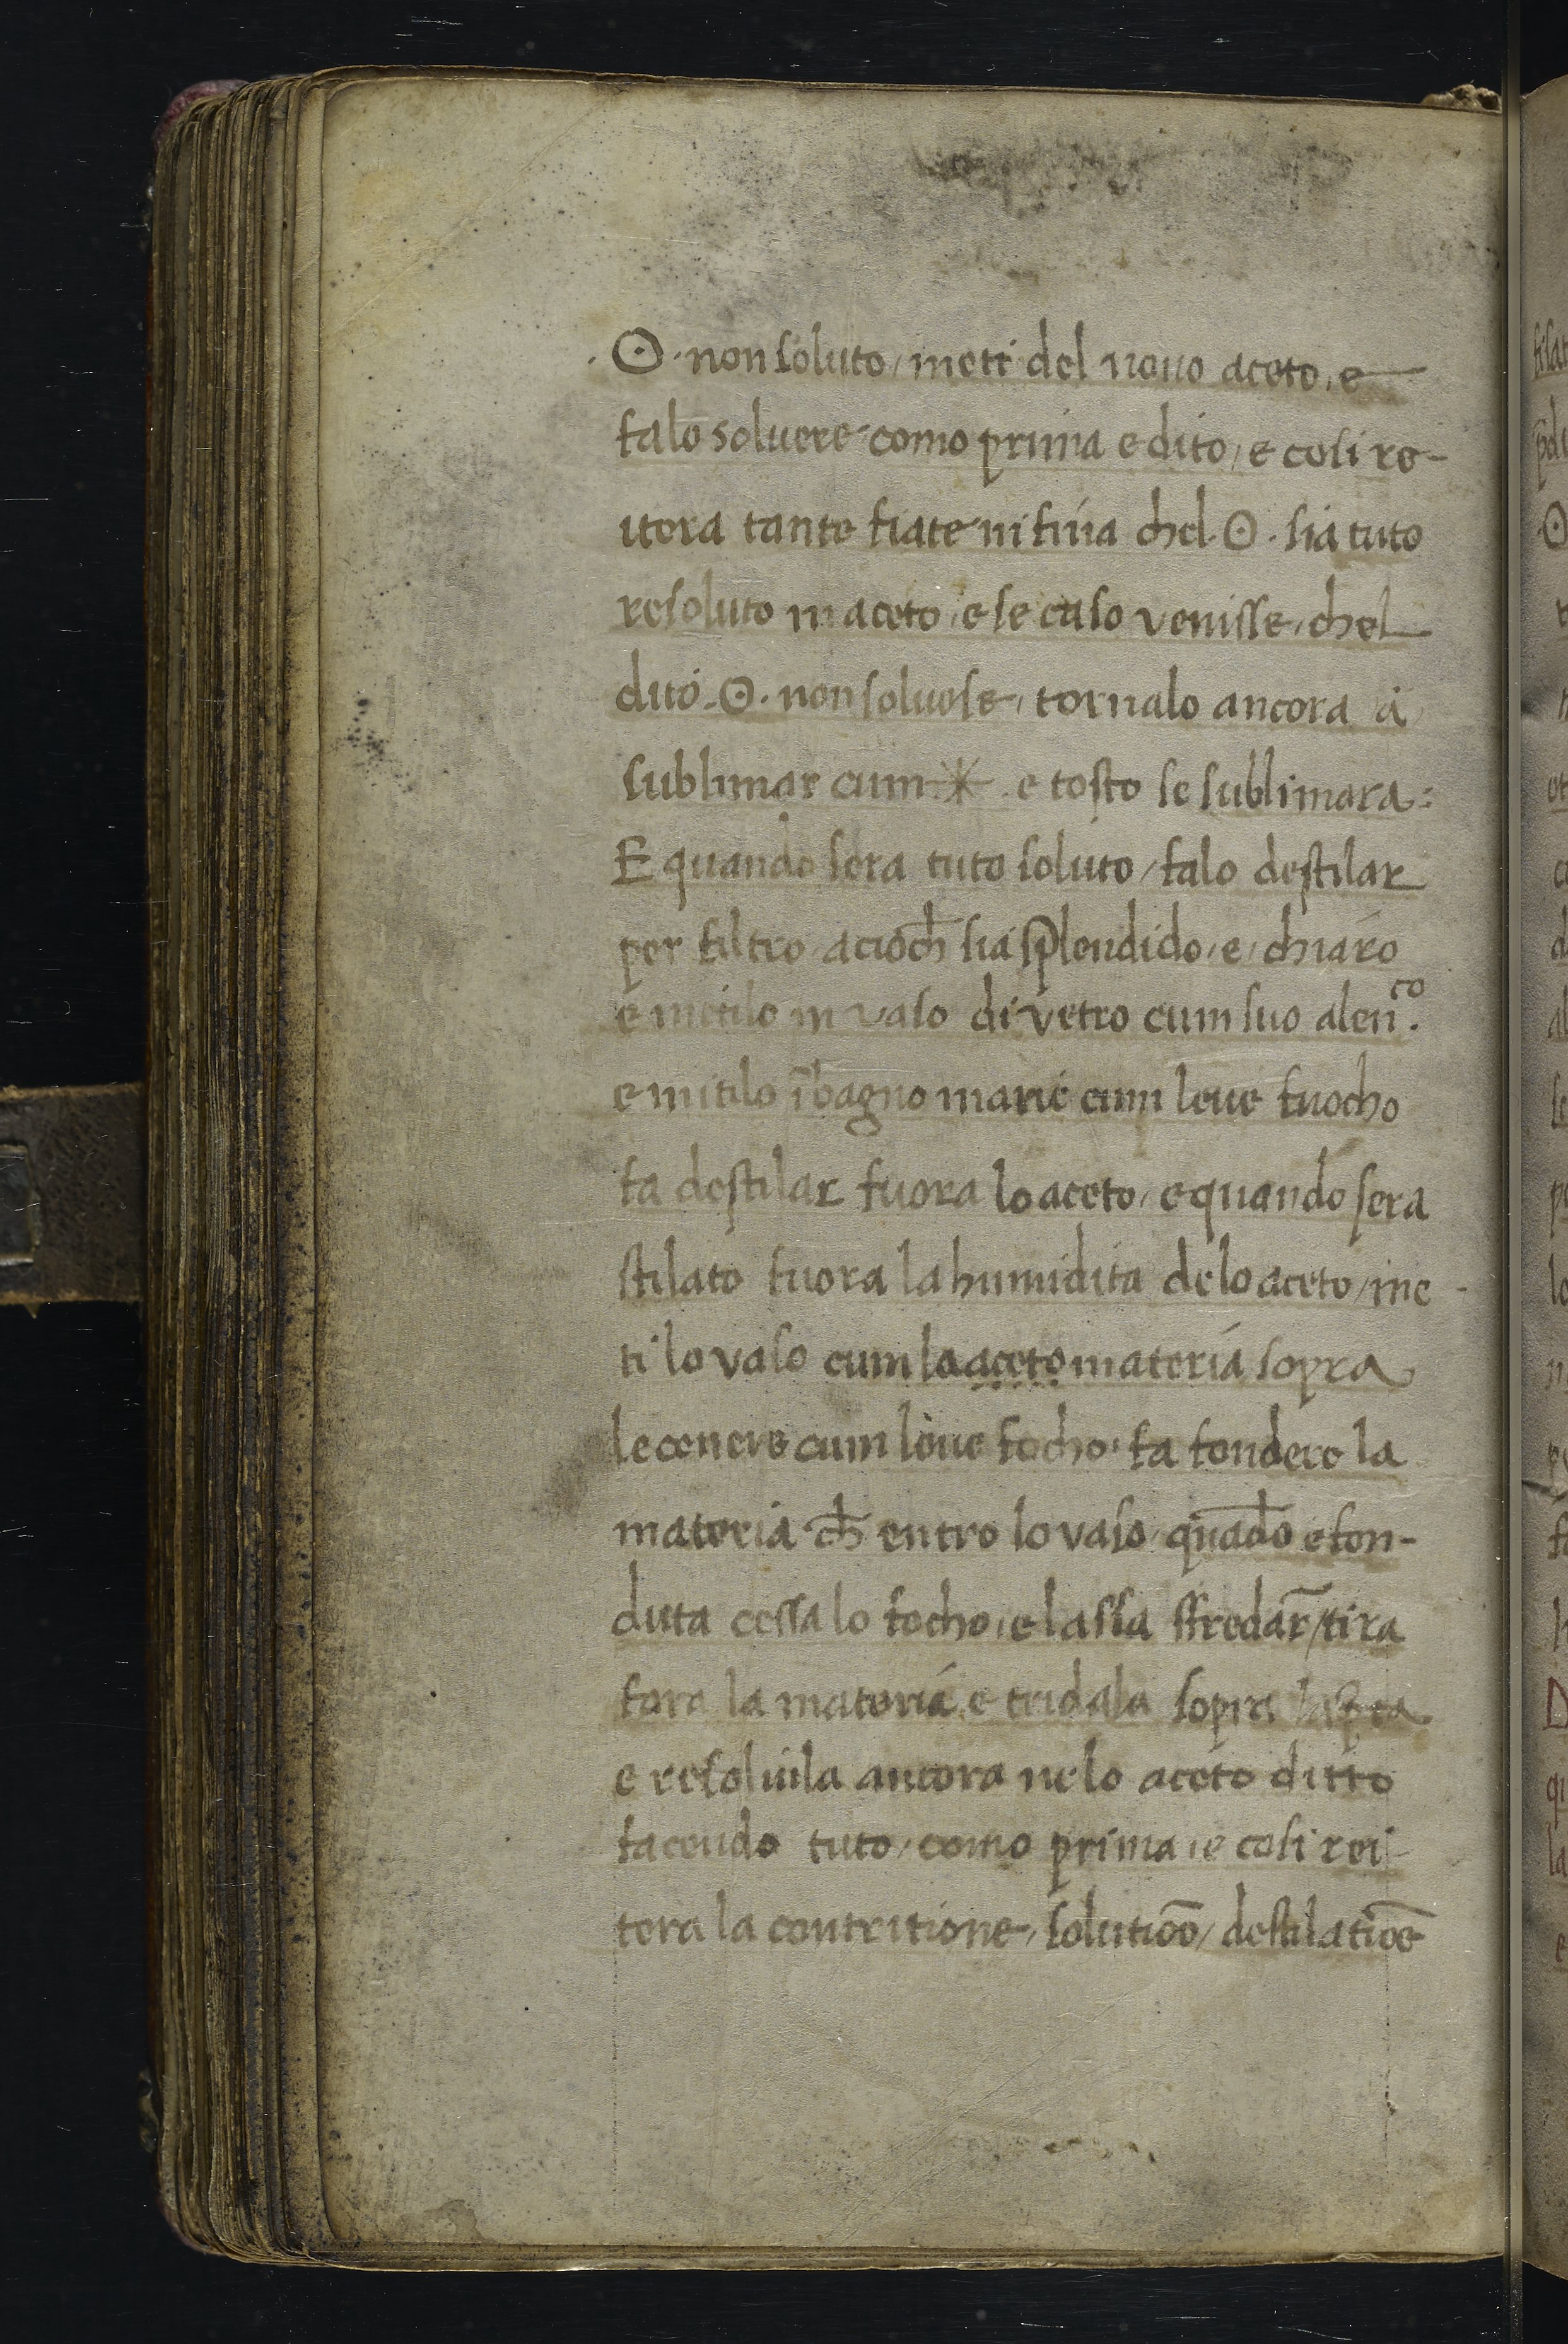 · ☉ · non soluto / meti del novo aceto, e
falo soluere como prima e dito, e cosi re-
itera tante fiate ni fina chel · ☉ · sia tuto
resoluto in aceto, e se caso venisse, chel
dito · ☉ · non soluese, tornalo ancora à
sublimar cum · ✳ · e tosto se sublimara:
E quando sera tuto soluto / falo destilar
per filtro acioch̄ sia splendido, e, chiaro
e metilo in vaso di vetro cum suo alen̄.ᶜᵒ
e mitilo ī bagno marie cum leue fuocho
fa destilar fuora lo aceto, e quando sera
stilato fuora la humidita de lo aceto / me-
ti lo vaso cum la aceto materia sopra
le cenere cum leue focho, fa fondere la
materia ch̄ entro lo vaso, quādo e fon-
duta cessa lo focho, e lassa sfredar̄ / tira
fora la materia, e tridala sopra
e resoluila ancora ne lo aceto ditto
facendo tuto, como prima, e cosi rei-
tera la contritione, solutiōe / destilatiōe